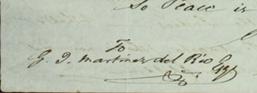 So Peace is
To
G. J. Martinez del Rio Esqr